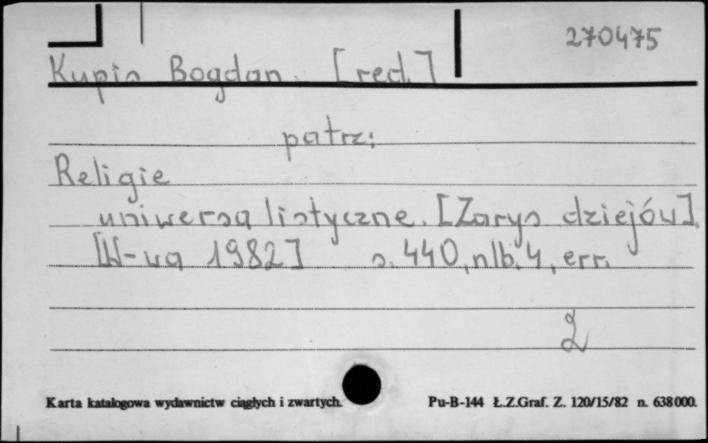 270475
Kupis Bogdan. [red.]
patrz:
Religie
uniwersalistyczne. [Zarys dziejów].
[W-wa 1982] s. 440, nlb. 4, err.
2
Karta katalogowa wydawnictw ciągłych i zwartych. Pu-B-144 Ł.Z.Graf. Z. 120/15/82 n. 638000.